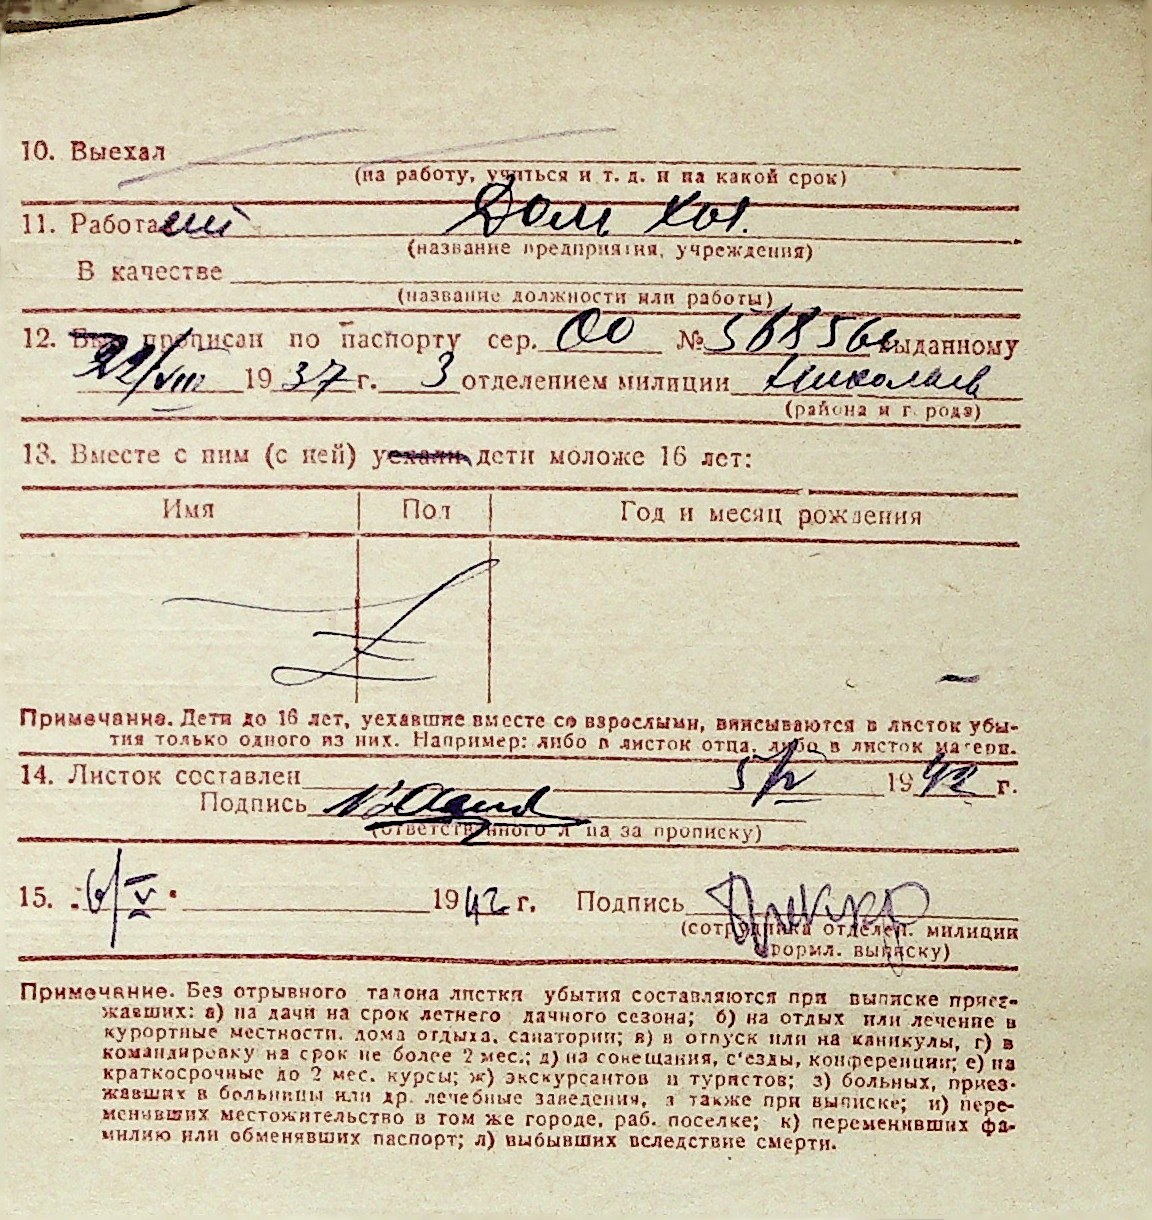 10. Выехал
(на работу, учиться и т. д. и на какой срок)
11. Работа Дом хоз.
(название предприятия, учреждения)
В качестве
(название должности или работы)
12. прописан по паспорту сер. ОО № выданному
22/VIII 1937 г. 3 отделением милиции Николаев
(района и города)
13. Вместе с ним (с ней) уехали дети моложе 16 лет:
Имя Пол Год и месяц рождения
Примечание. Дети до 16 лет, уехавшие вместе со взрослыми, вписываются в листок убы-
тия только одного из них. Например: либо в листок отца, либо в листок матери.
14. Листок составлен 5/V 1942 г.
Подпись
(ответственного лица за прописку)
15. 6/V 1942 г. Подпись
(сотрудника отделен. милиции
оформл. выписку)
Примечание. Без отрывного талона листки убытия составляются при выписке приез-
жавших: а) на дачи на срок летнего дачного сезона; б) на отдых или лечение в
курортные местности, дома отдыха, санатории; в) в отпуск или на каникулы, г) в
командировку на срок не более 2 мес.; д) на совещания, с'езды, конференции; е) на
краткосрочные до 2 мес. курсы; ж) экскурсантов и туристов; з) больных, приез-
жавших в больницы или др. лечебные заведения, а также при выписке; и) пере-
менивших местожительство в том же городе, раб. поселке; к) переменивших фа-
милию или обменявших паспорт; л) выбывших вследствие смерти.